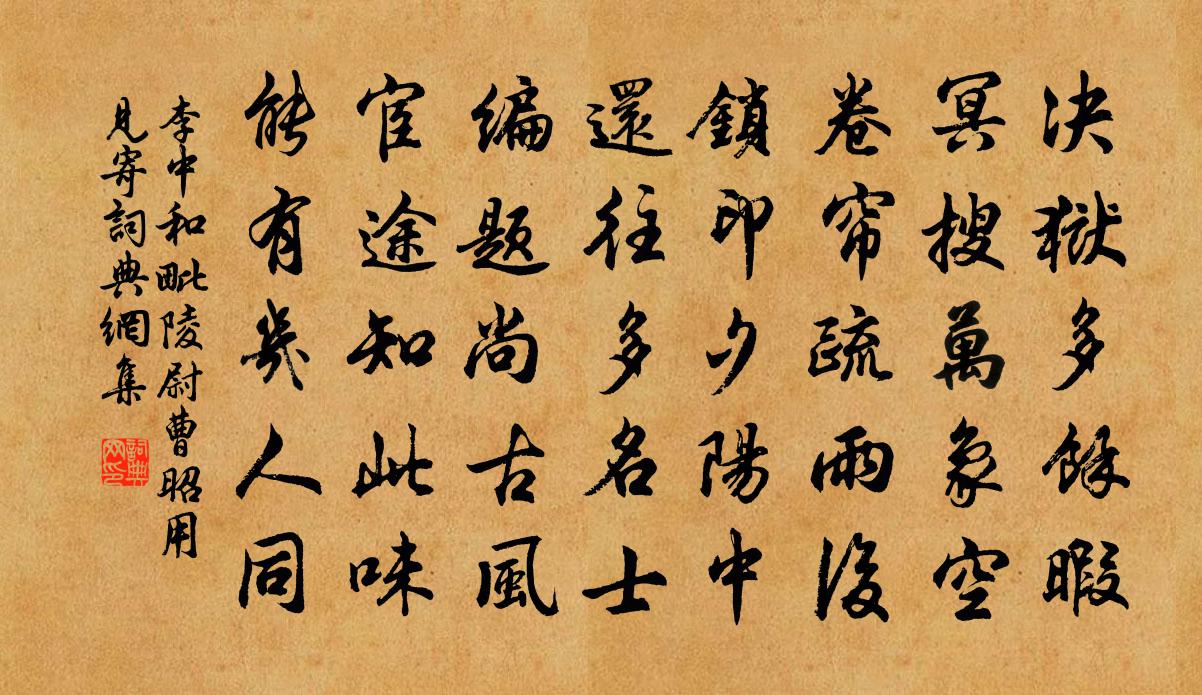 决獄多餘暇
冥搜萬象空
卷帘疏雨後
鎖印夕陽中
還往多名士
編題尚古風
宦途知此味
能有幾人同
李中和毗陵尉曹昭用
見寄詞典網集
詞典网印